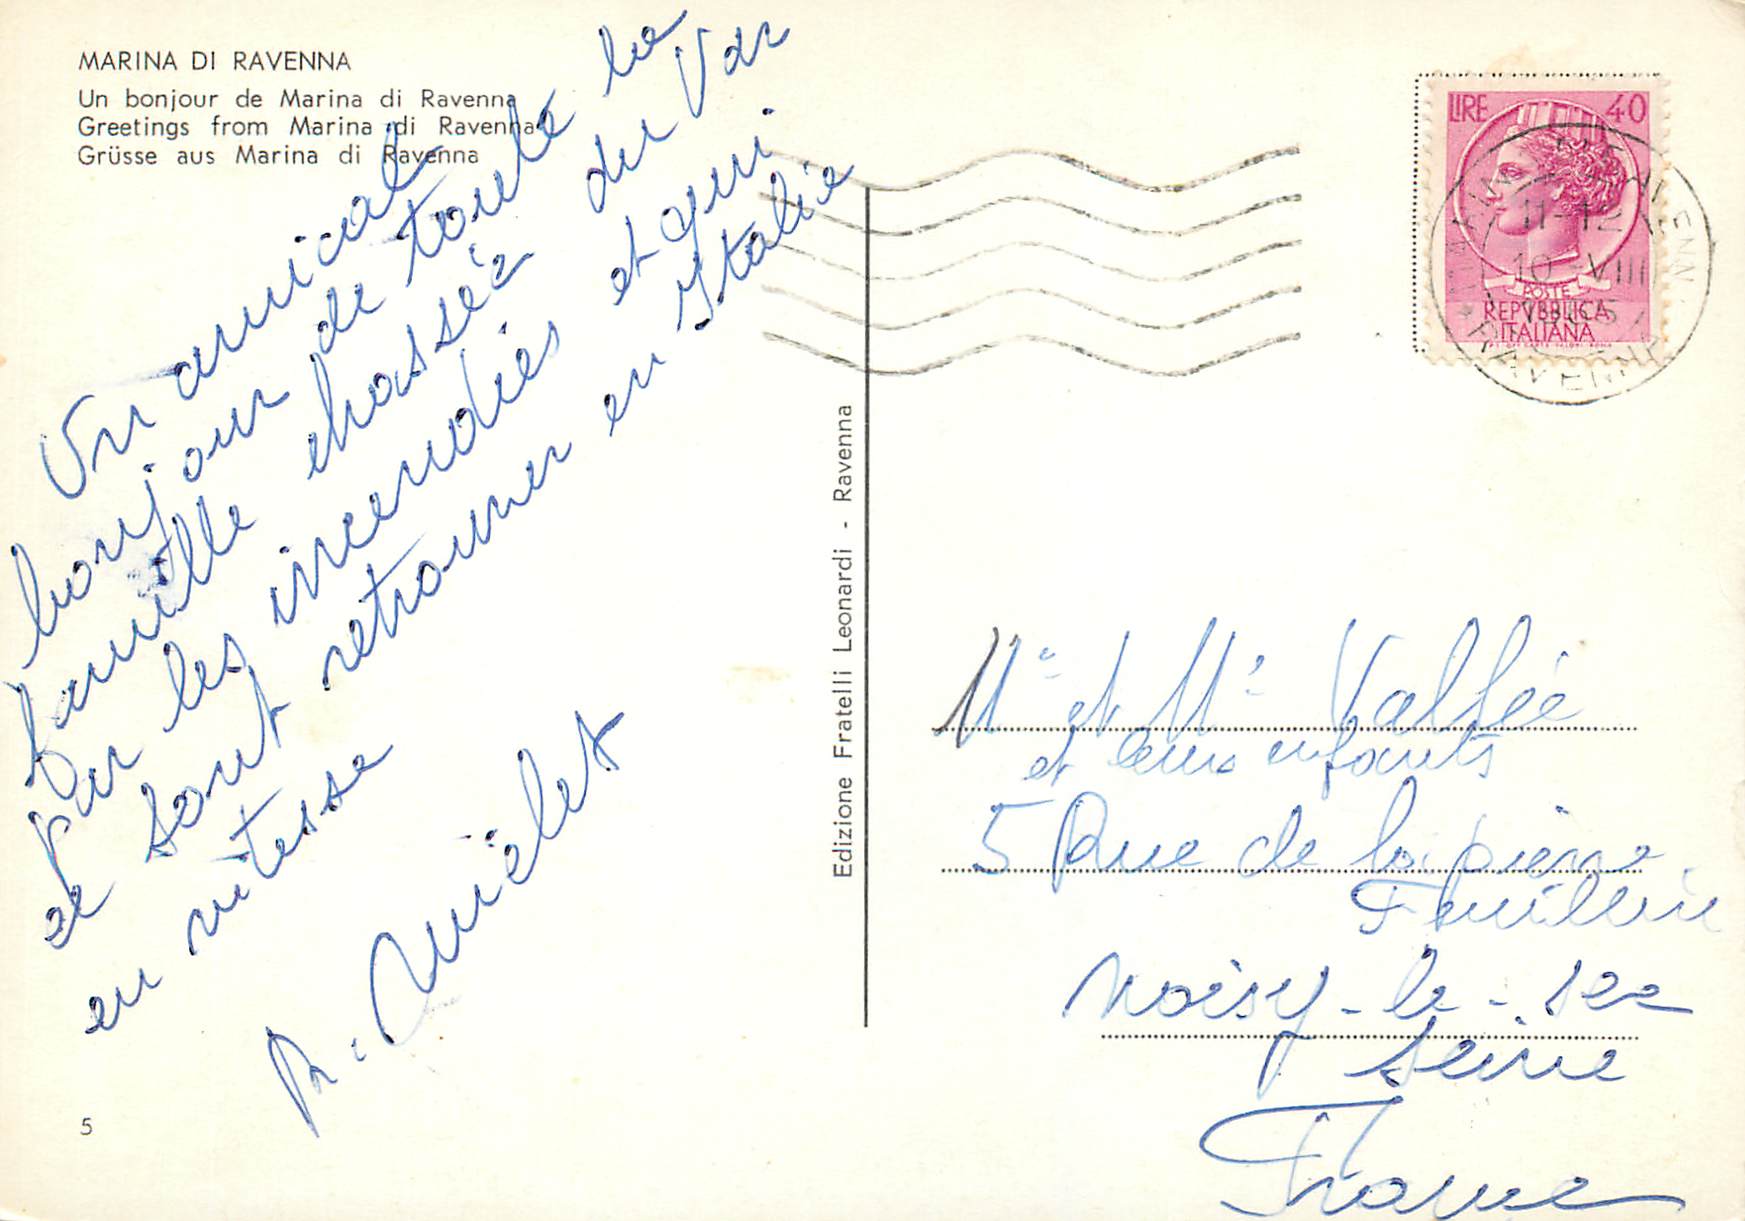 MARINA DI RAVENNA
Un bonjour de Marina di Ravenna
Greetings from Marina di Ravenna
Grüsse aus Marina di Ravenna
Un amical
bonjour de toute la
famille chassée du Var
par les incendies et qui
se sont retrouver en Italie
en vitesse
R. Quielet
5
Edizione Fratelli Leonardi - Ravenna
LIRE 40
POSTE
REPVBBLICA
ITALIANA
11-12
10-VIII
RAVENNA
Mr et Me Vallée
et leurs enfants
5 Rue de la pierre
Feuillère
Noisy-le-sec
Seine
France